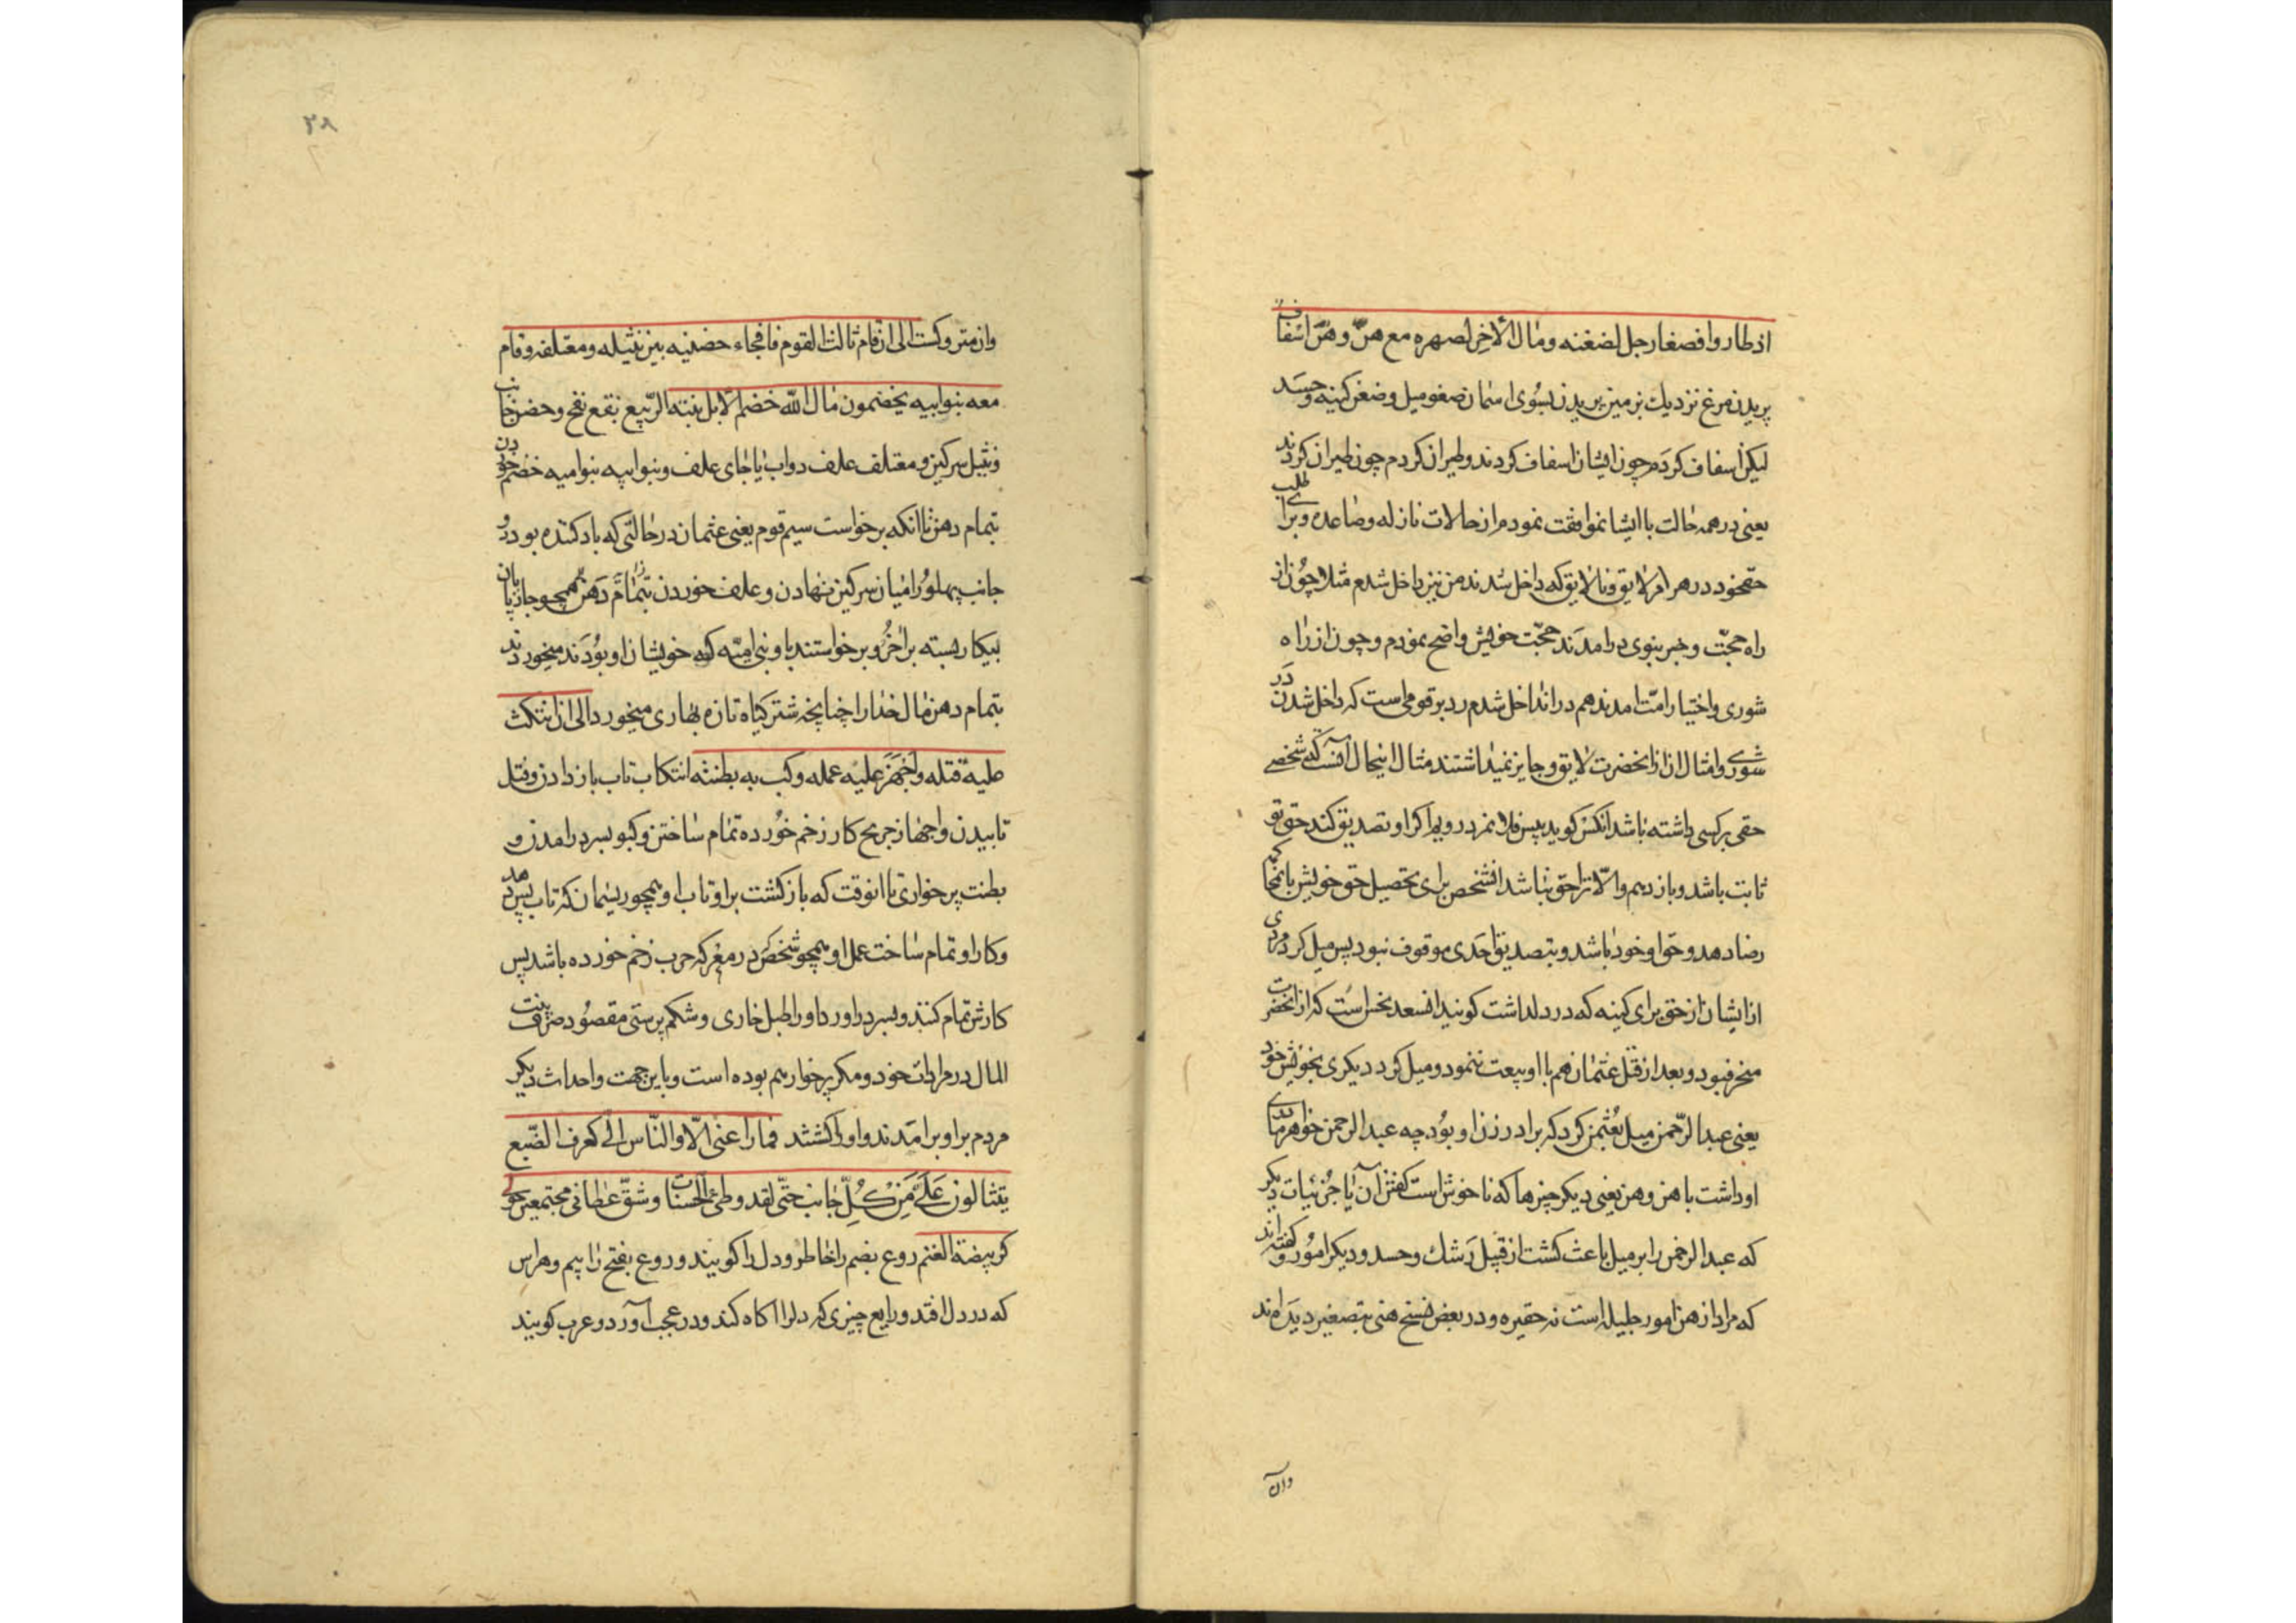 اذ طاروا فصغا رجل لضغنه ومال الآخر لصهره مع هن وهن اسفاف
پریدن مرغ نزدیك بزمین پریدن بسوی اسمان صغو میل و ضغن کینه و حسد
لیکن اسفاف کردم چون ایشان اسفاف کردند و طیران کردم چون طیران کردند
یعنی در همه حالت با ایشان موافقت نمودم از حالات نازله و صاعده و برای طلب
حق خود در هر امر لایق و نالایق که داخل شدند من نیز داخل شدم مثلا چون از
راه حجت و خبر نبوی درامدند حجت خویش واضح نمودم و چون از راه
شوری و اختیار امت امدند هم در ان داخل شدم رد بر قومی است که داخل شدن در
شوری و امثال ان از انحضرت لایق و جایز نمیداشتند مثال اینحال انست که شخصی
حقی بر کسی داشته باشد انکس کوید پیش فلان مرد رویم اکر او تصدیق کند حق تو
ثابت باشد و باز دهم والا ترا حق نباشد انشخص برای تحصیل حق خویش با
رضا دهد و حق او خود باشد و بتصدیق احدی موقوف نبود پس میل کرد مردی
از ایشان از حق برای کینه که در دل داشت کویند ان سعد نحس است که از انحضرت
منحرف بود و بعد از قتل عثمان هم با او بیعت ننمود و میل کرد دیکری بخویش خود
یعنی عبد الرحمن میل بعثمن کرد که برادر زن او بود چه عبد الرحمن خواهر مادری
او داشت با هن و هن یعنی دیکر چیزها که ناخوش است کفتن آن یا جزئیات دیکر
که عبد الرحمن را بر میل باعث کشت از قبیل رشك و حسد و دیکر امور و کفته اند
که مراد از هن امور جلیله است نه حقیره و در بعض نسخ هنی بتصغیر دیده اند
وان
۳۸
وان متر وکست الی ان قام ثالث القوم نافجاء حضنیه بین نثیله و معتلفه و قام
معه بنو ابیه یخضمون مال الله خضم الابل نبتة الربیع نفج و حضن جانب
و نثیل سرکین و معتلف علف دواب یا جای علف و بنو ابیه بنو امیه خضم خوردن
بتمام دهن تا انکه برخواست سیم قوم یعنی عثمان در حالتی که باد کننده بود دو
جانب پهلو را میان سرکین نهادن و علف خوردن بتمام دهن همچو چارپایان
بیکار بسته بر اخر و برخواستند با او بنی امیه که خویشان او بودند میخوردند
بتمام دهن مال خدا را چنانچه شتر کیاه تازه بهاری میخورد الی ان انتکث
علیه فتله واجهز علیه عمله وکبت به بطنته انتکاب تاب باز دادن و فتل
تابیدن و اجهاز جریح کار زخم خورده تمام ساختن و کبو بسر درامدن و
بطنت پر خواری تا انوقت که باز کشت بر او تاب او همچو ریسمان که تاب پس دهد
و کار او تمام ساخت عمل او همچو شخص که در معرکه حرب زخم خورده باشد پس
کارش تمام کنند و بسر دراورد او را طبل خاری و شکم پرستی مقصود صرف بیت
المال در مرادات خود و مکر پر خوار هم بوده است و باین جهت و احداث دیکر
مردم بر او برامدند و او را کشتند فما راعنی الا والناس الی کعرف الضبع
ینثالون علی من کل جانب حتی لقد وطئ الحسنان و شق عطافی مجتمعین حولی
کربیضة الغنم روع بضم را خاطر و دل را کویند و روع بفتح را بیم و هراس
که در دل افتد و رایع چیزی که دلرا اکاه کند و در عجب آورد و عرب کویند